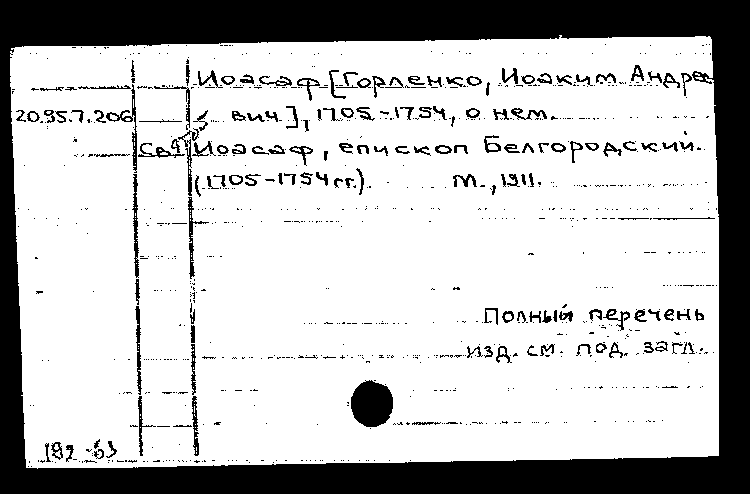 Иоасаф [Горленко, Иоаким Андрее
20.95.7.206 вич], 1705-1754, о нем.
Святой Иоасаф, епископ Белгородский.
(1705-1754 гг.). М., 1911.
Полный перечень
изд. см. под загл.
192-63